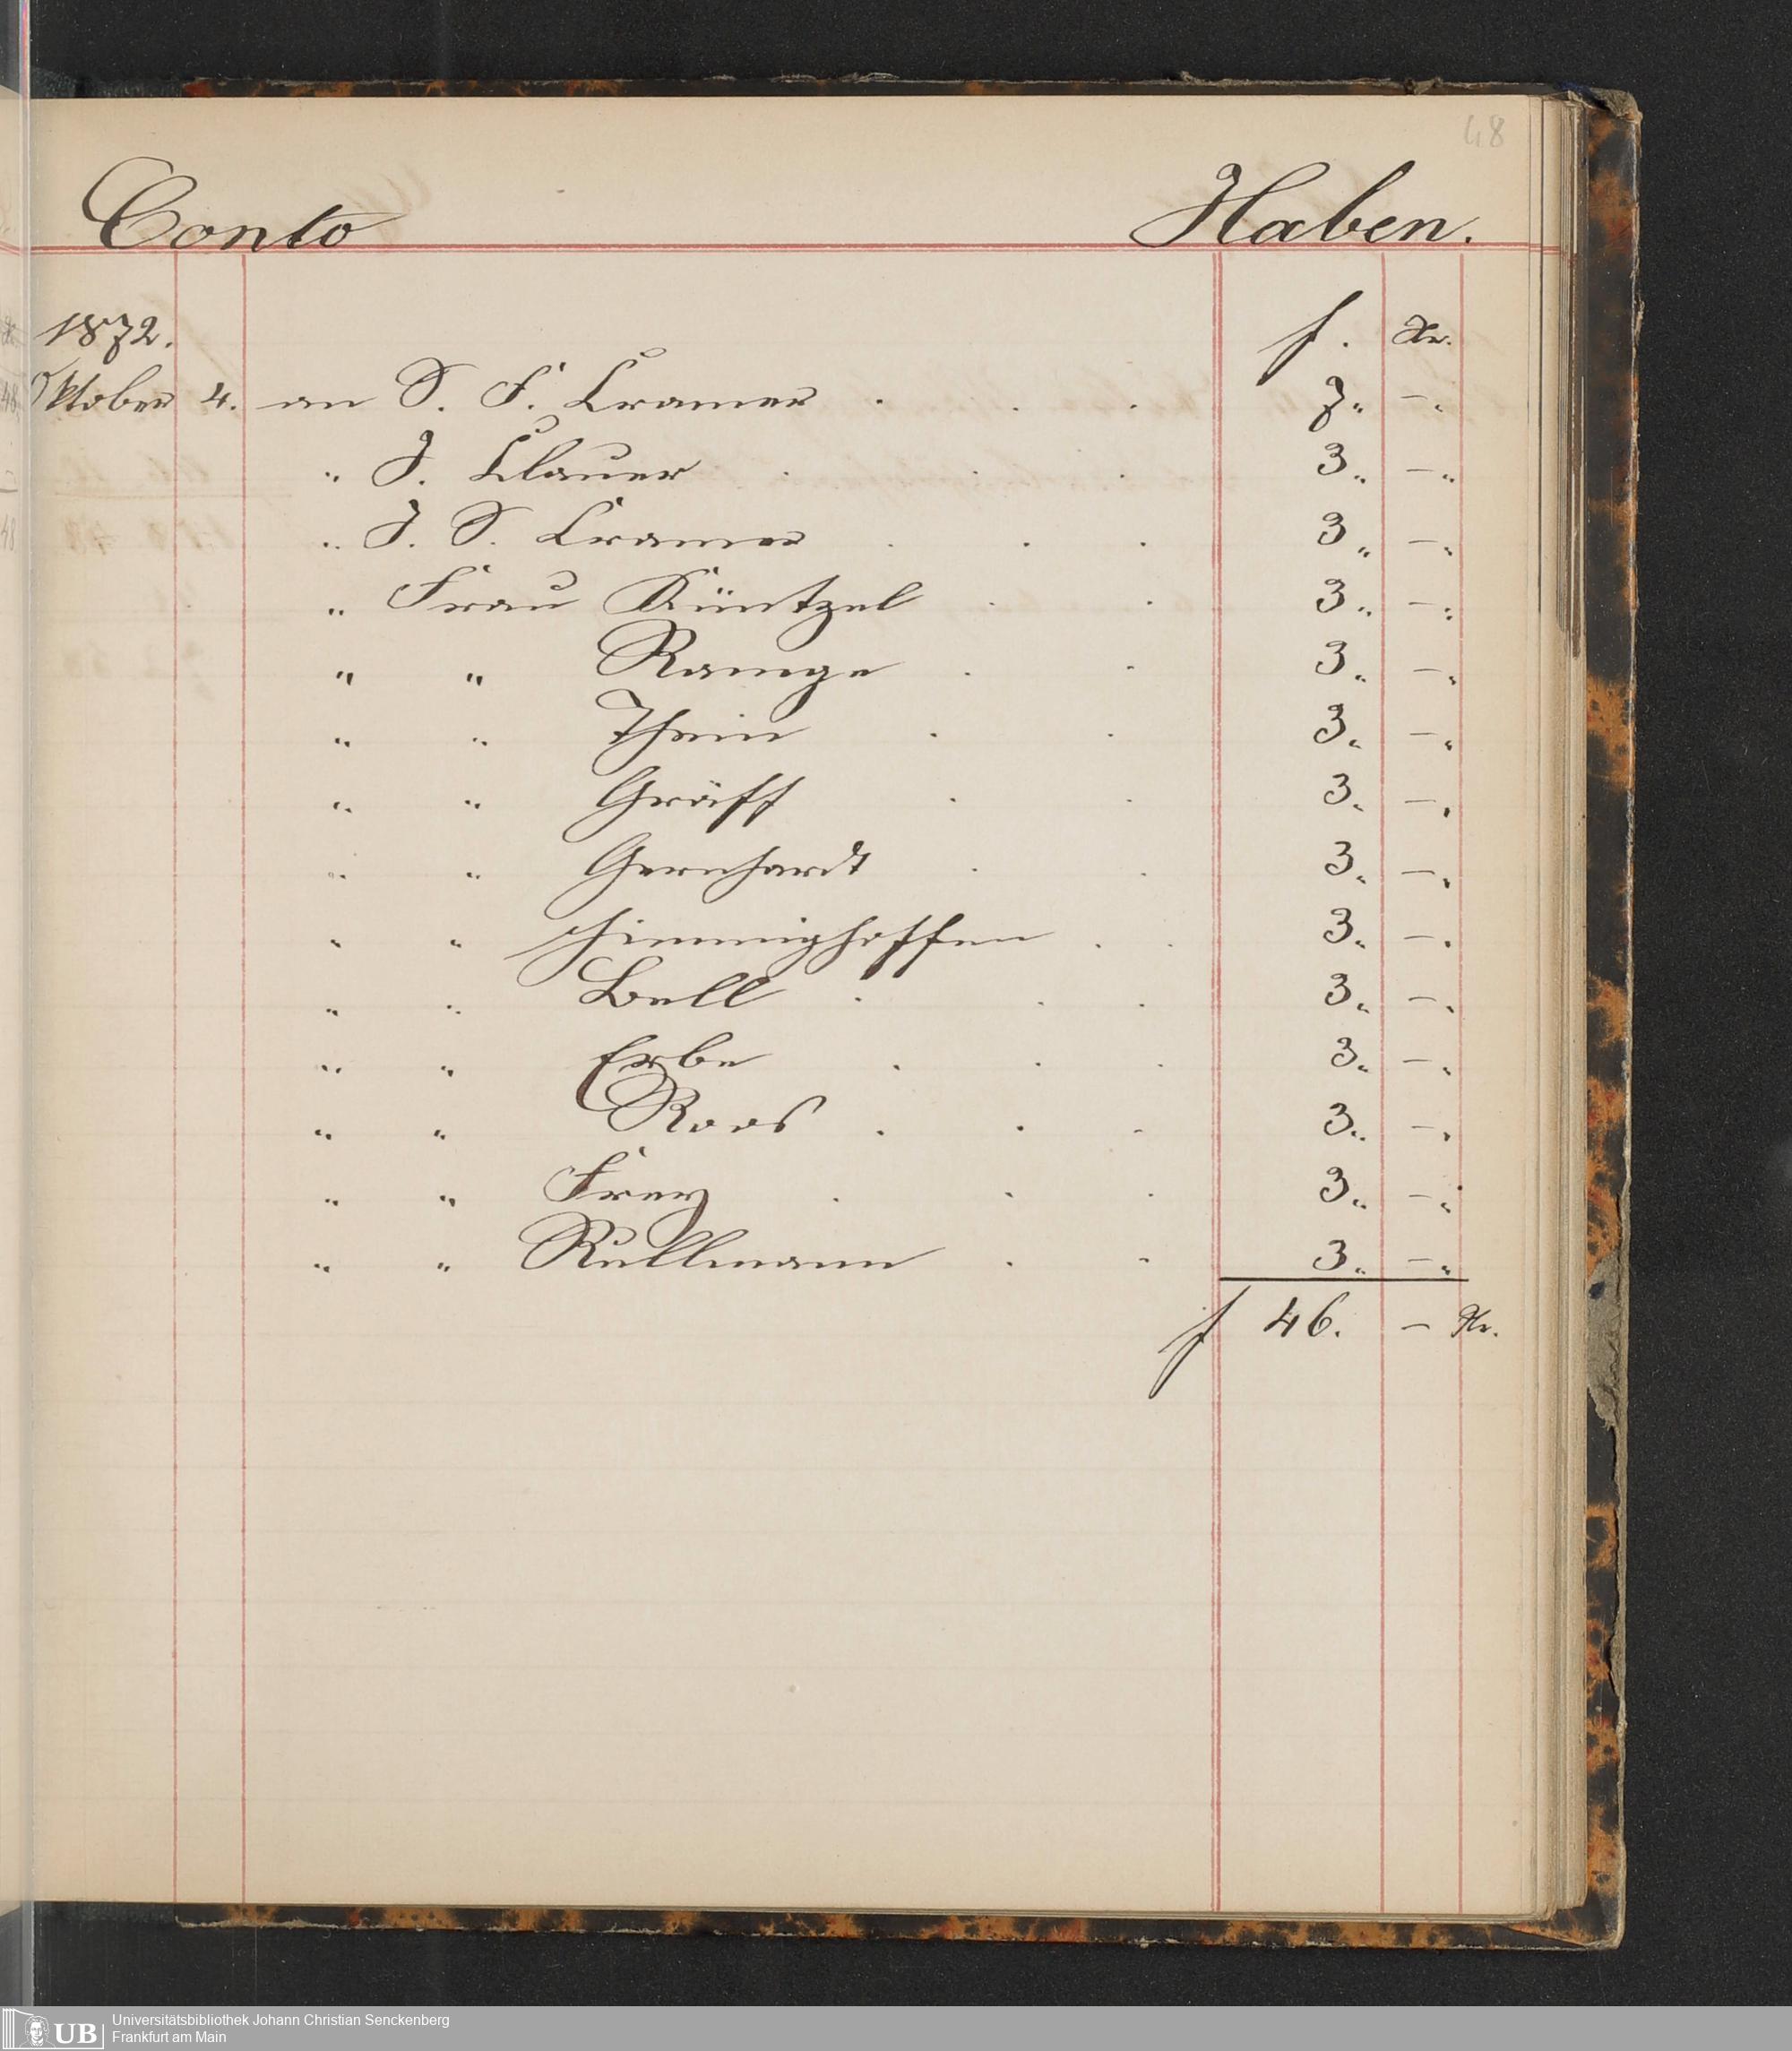 48
Conto Haben.
1872. f. Xr.
Oktober 4. an S. F. Cramer . . . 7„ –„
„ J. Clauer . . . 3„ –„
„ J. S. Cramer . . . 3„ –„
„ Frau Küntzel . . 3„ –„
„ „ Ramge . . 3„ –„
„ „ Thein . . 3„ –„
„ „ Gräff . . 3„ –„
„ „ Gernhardt . . 3„ –„
„ „ Himmighoffen . . 3„ –„
„ „ Bell . . . 3„ –„
„ „ Erbe . . . 3„ –„
„ „ Roos . . . 3„ –„
„ „ Frey . . . 3„ –„
„ „ Rullmann . . 3„ –„
f 46. – Xr.
UB Universitätsbibliothek Johann Christian Senckenberg
Frankfurt am Main